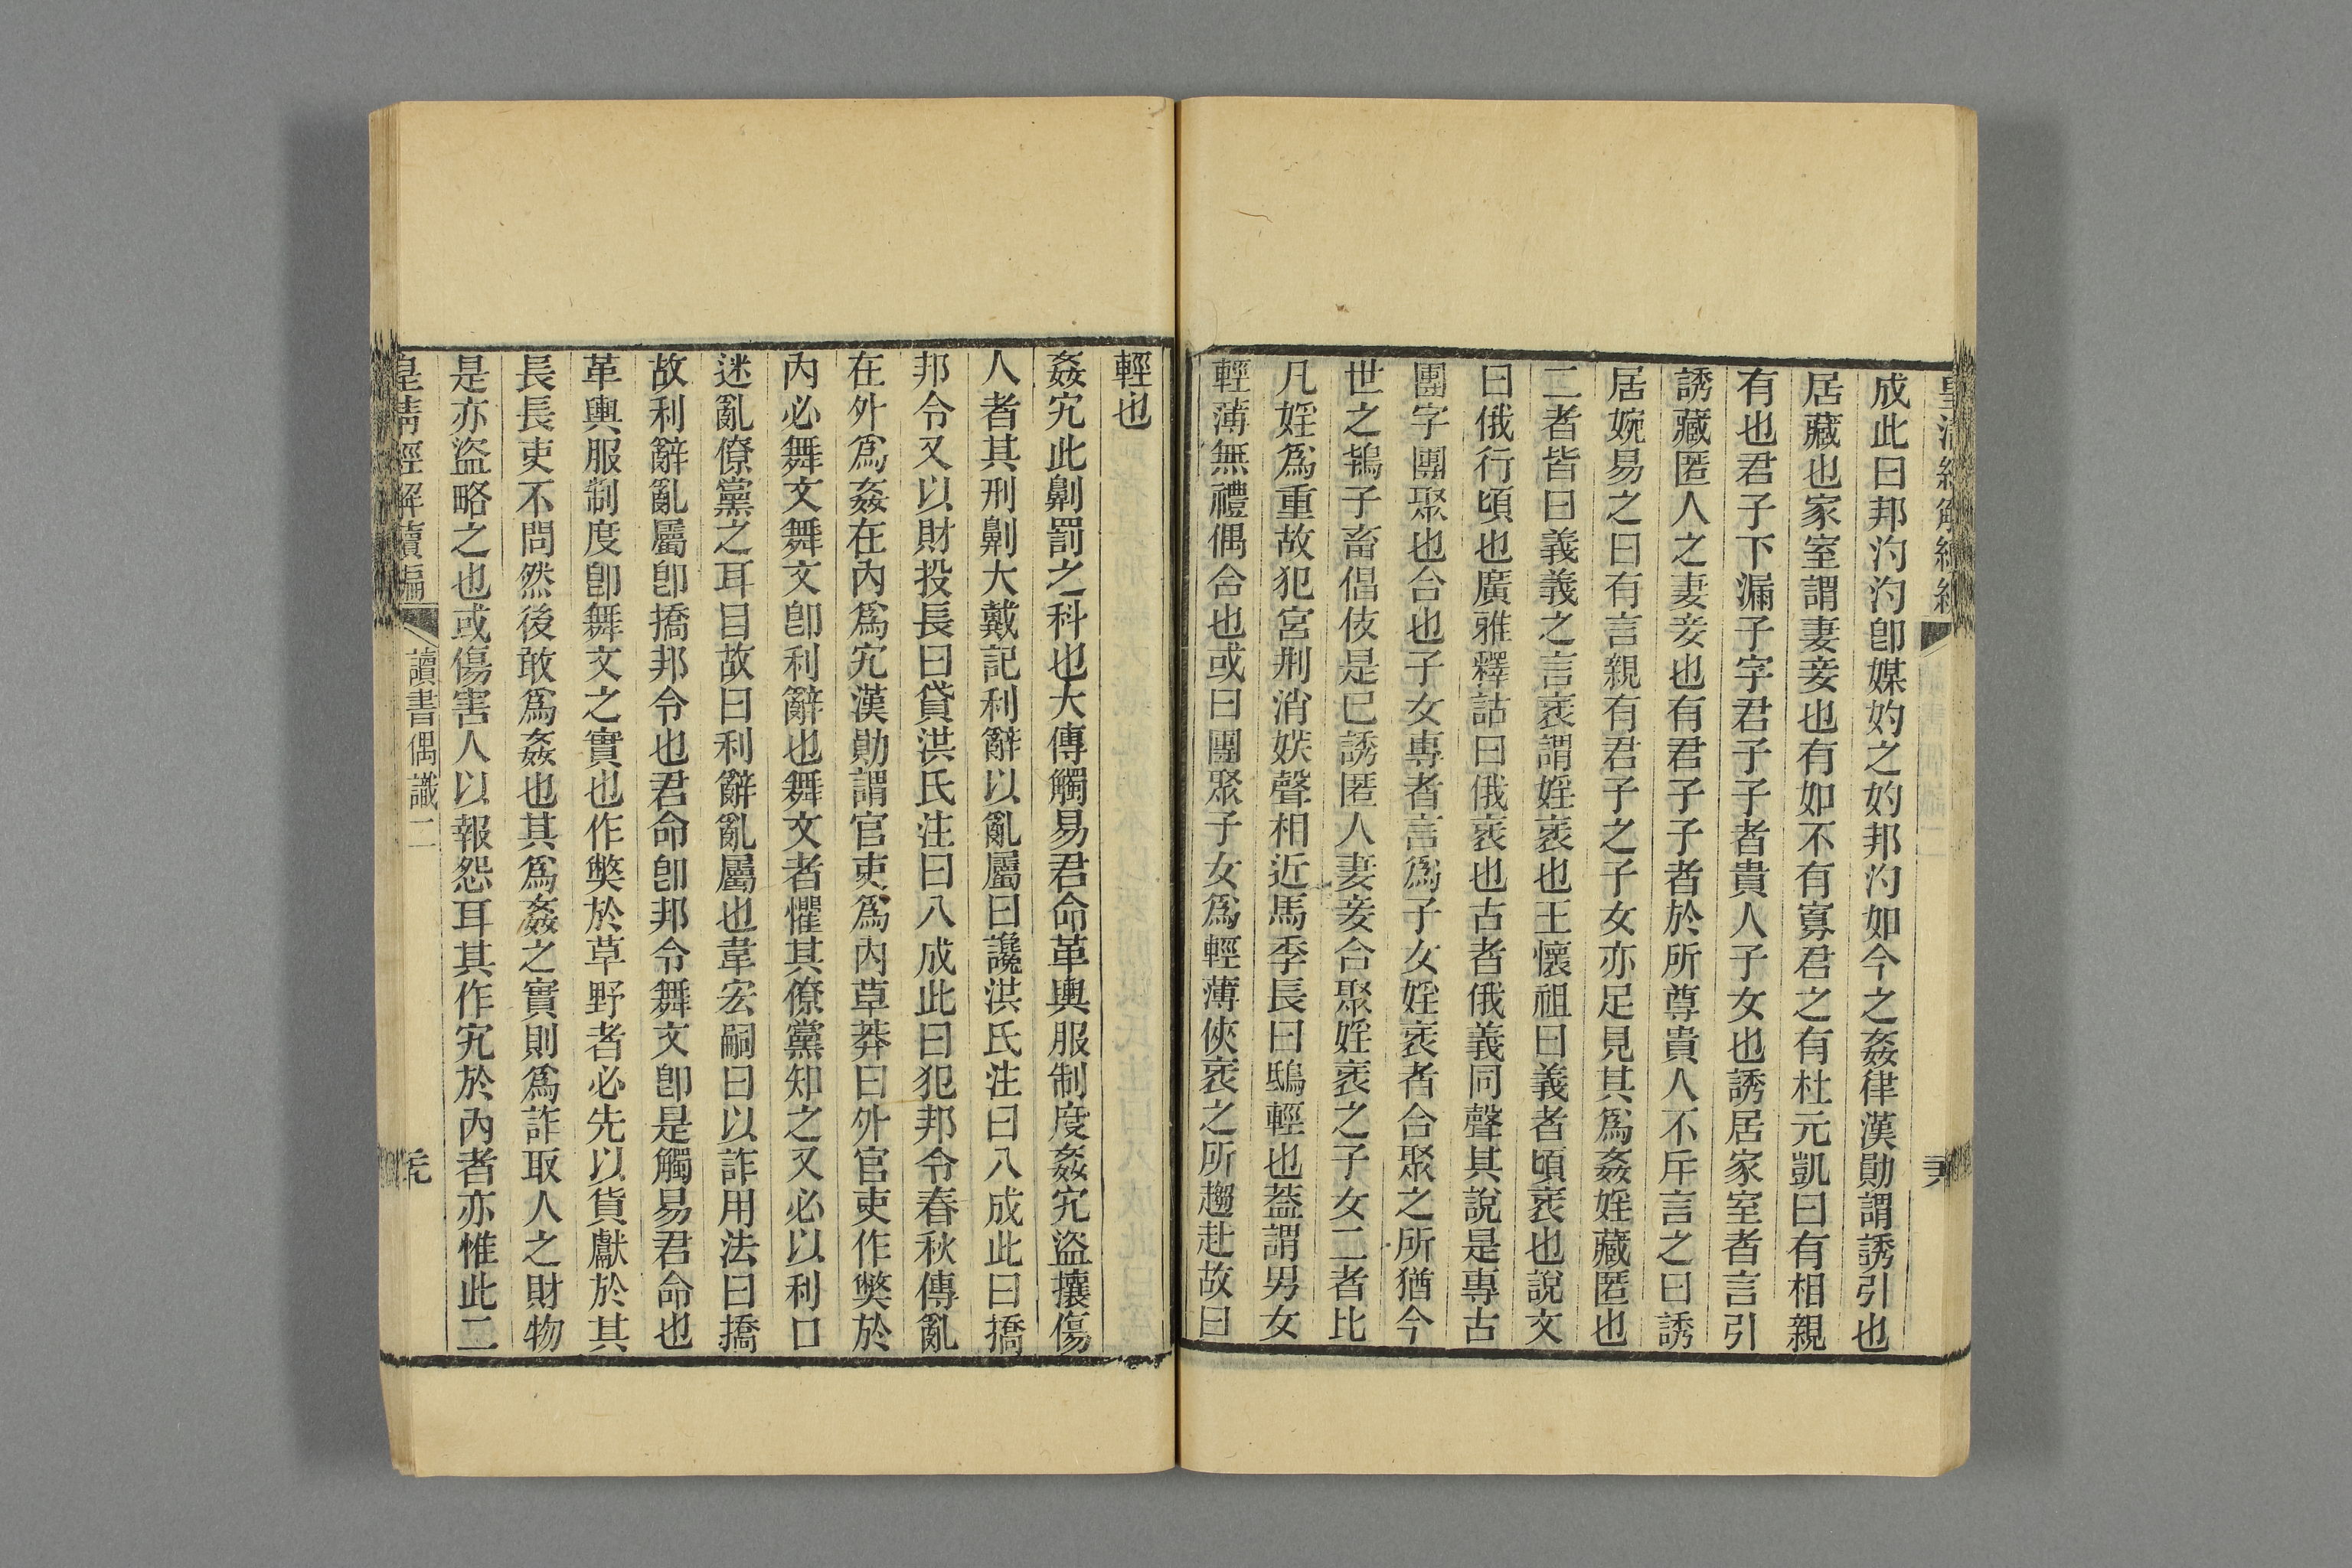 成此曰邦汋汋卽媒妁之妁邦汋如今之姦律漢勛謂誘引也
居藏也家室謂妻妾也有如不有寡君之有杜元凱曰有相親
有也君子下漏子字君子子者貴人子女也誘居家室者言引
誘藏匿人之妻妾也有君子子者於所尊貴人不斥言之曰誘
居婉易之曰有言親有君子之子女亦足見其爲姦婬藏匿也
二者皆曰義義之言衺謂婬衺也王懷祖曰義者頃衺也說文
曰俄行頃也廣雅釋詁曰俄衺也古者俄義同聲其說是專古
團字團聚也合也子女專者言爲子女婬衺者合聚之所猶今
世之鴇子畜倡伎是已誘匿人妻妾合聚婬衺之子女二者比
凡婬爲重故犯宮刑消媄聲相近馬季長曰鴟輕也蓋謂男女
輕薄無禮偶合也或曰團聚子女爲輕薄俠衺之所趨赴故曰
輕也
姦宄此劓罰之科也大傳觸易君命革輿服制度姦宄盜攘傷
人者其刑劓大戴記利辭以亂屬曰讒洪氏注曰八成此曰撟
邦令又以財投長曰貸洪氏注曰八成此曰犯邦令春秋傳亂
在外爲姦在內爲宄漢勛謂官吏爲內草莽曰外官吏作獘於
內必舞文舞文卽利辭也舞文者懼其僚黨知之又必以利口
迷亂僚黨之耳目故曰利辭亂屬也韋宏嗣曰以詐用法曰撟
故利辭亂屬卽撟邦令也君命卽邦令舞文卽是觸易君命也
革輿服制度卽舞文之實也作獘於草野者必先以貨獻於其
長長吏不問然後敢爲姦也其爲姦之實則爲詐取人之財物
是亦盜略之也或傷害人以報怨耳其作宄於內者亦惟此二
皇清經解續編
讀書偶識二